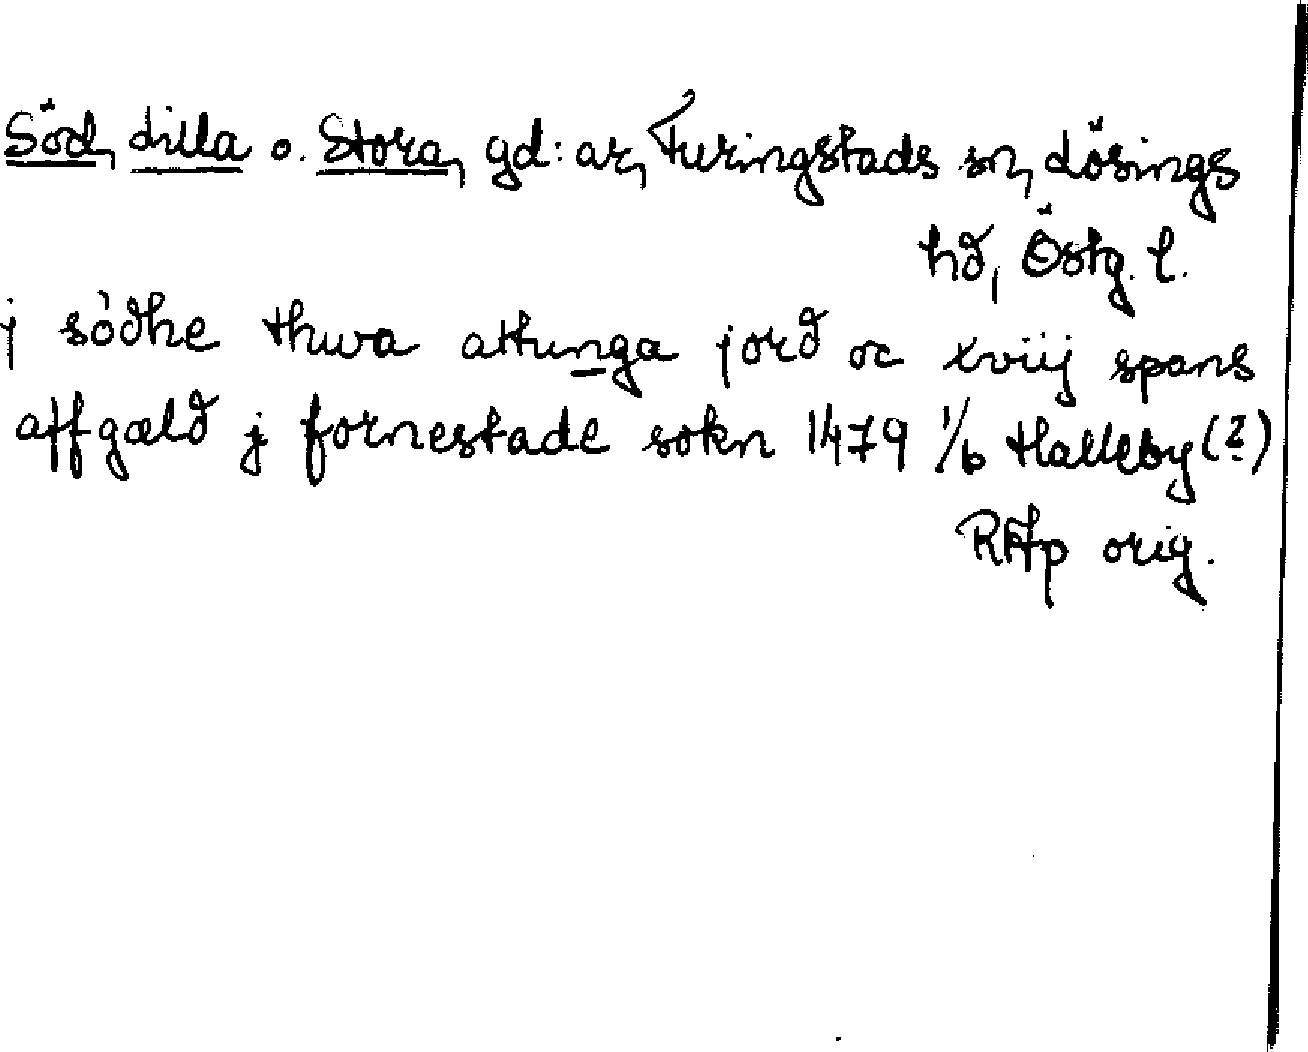 Söd, Lilla o. Stora, gd:ar, Furingstads sn, Lösings
hd, Östg. l.
j södhe thwa attunga jord oc xviij spans
affgæld j fornestade sokn 1479 1/6 Halleby (?)
RAp orig.